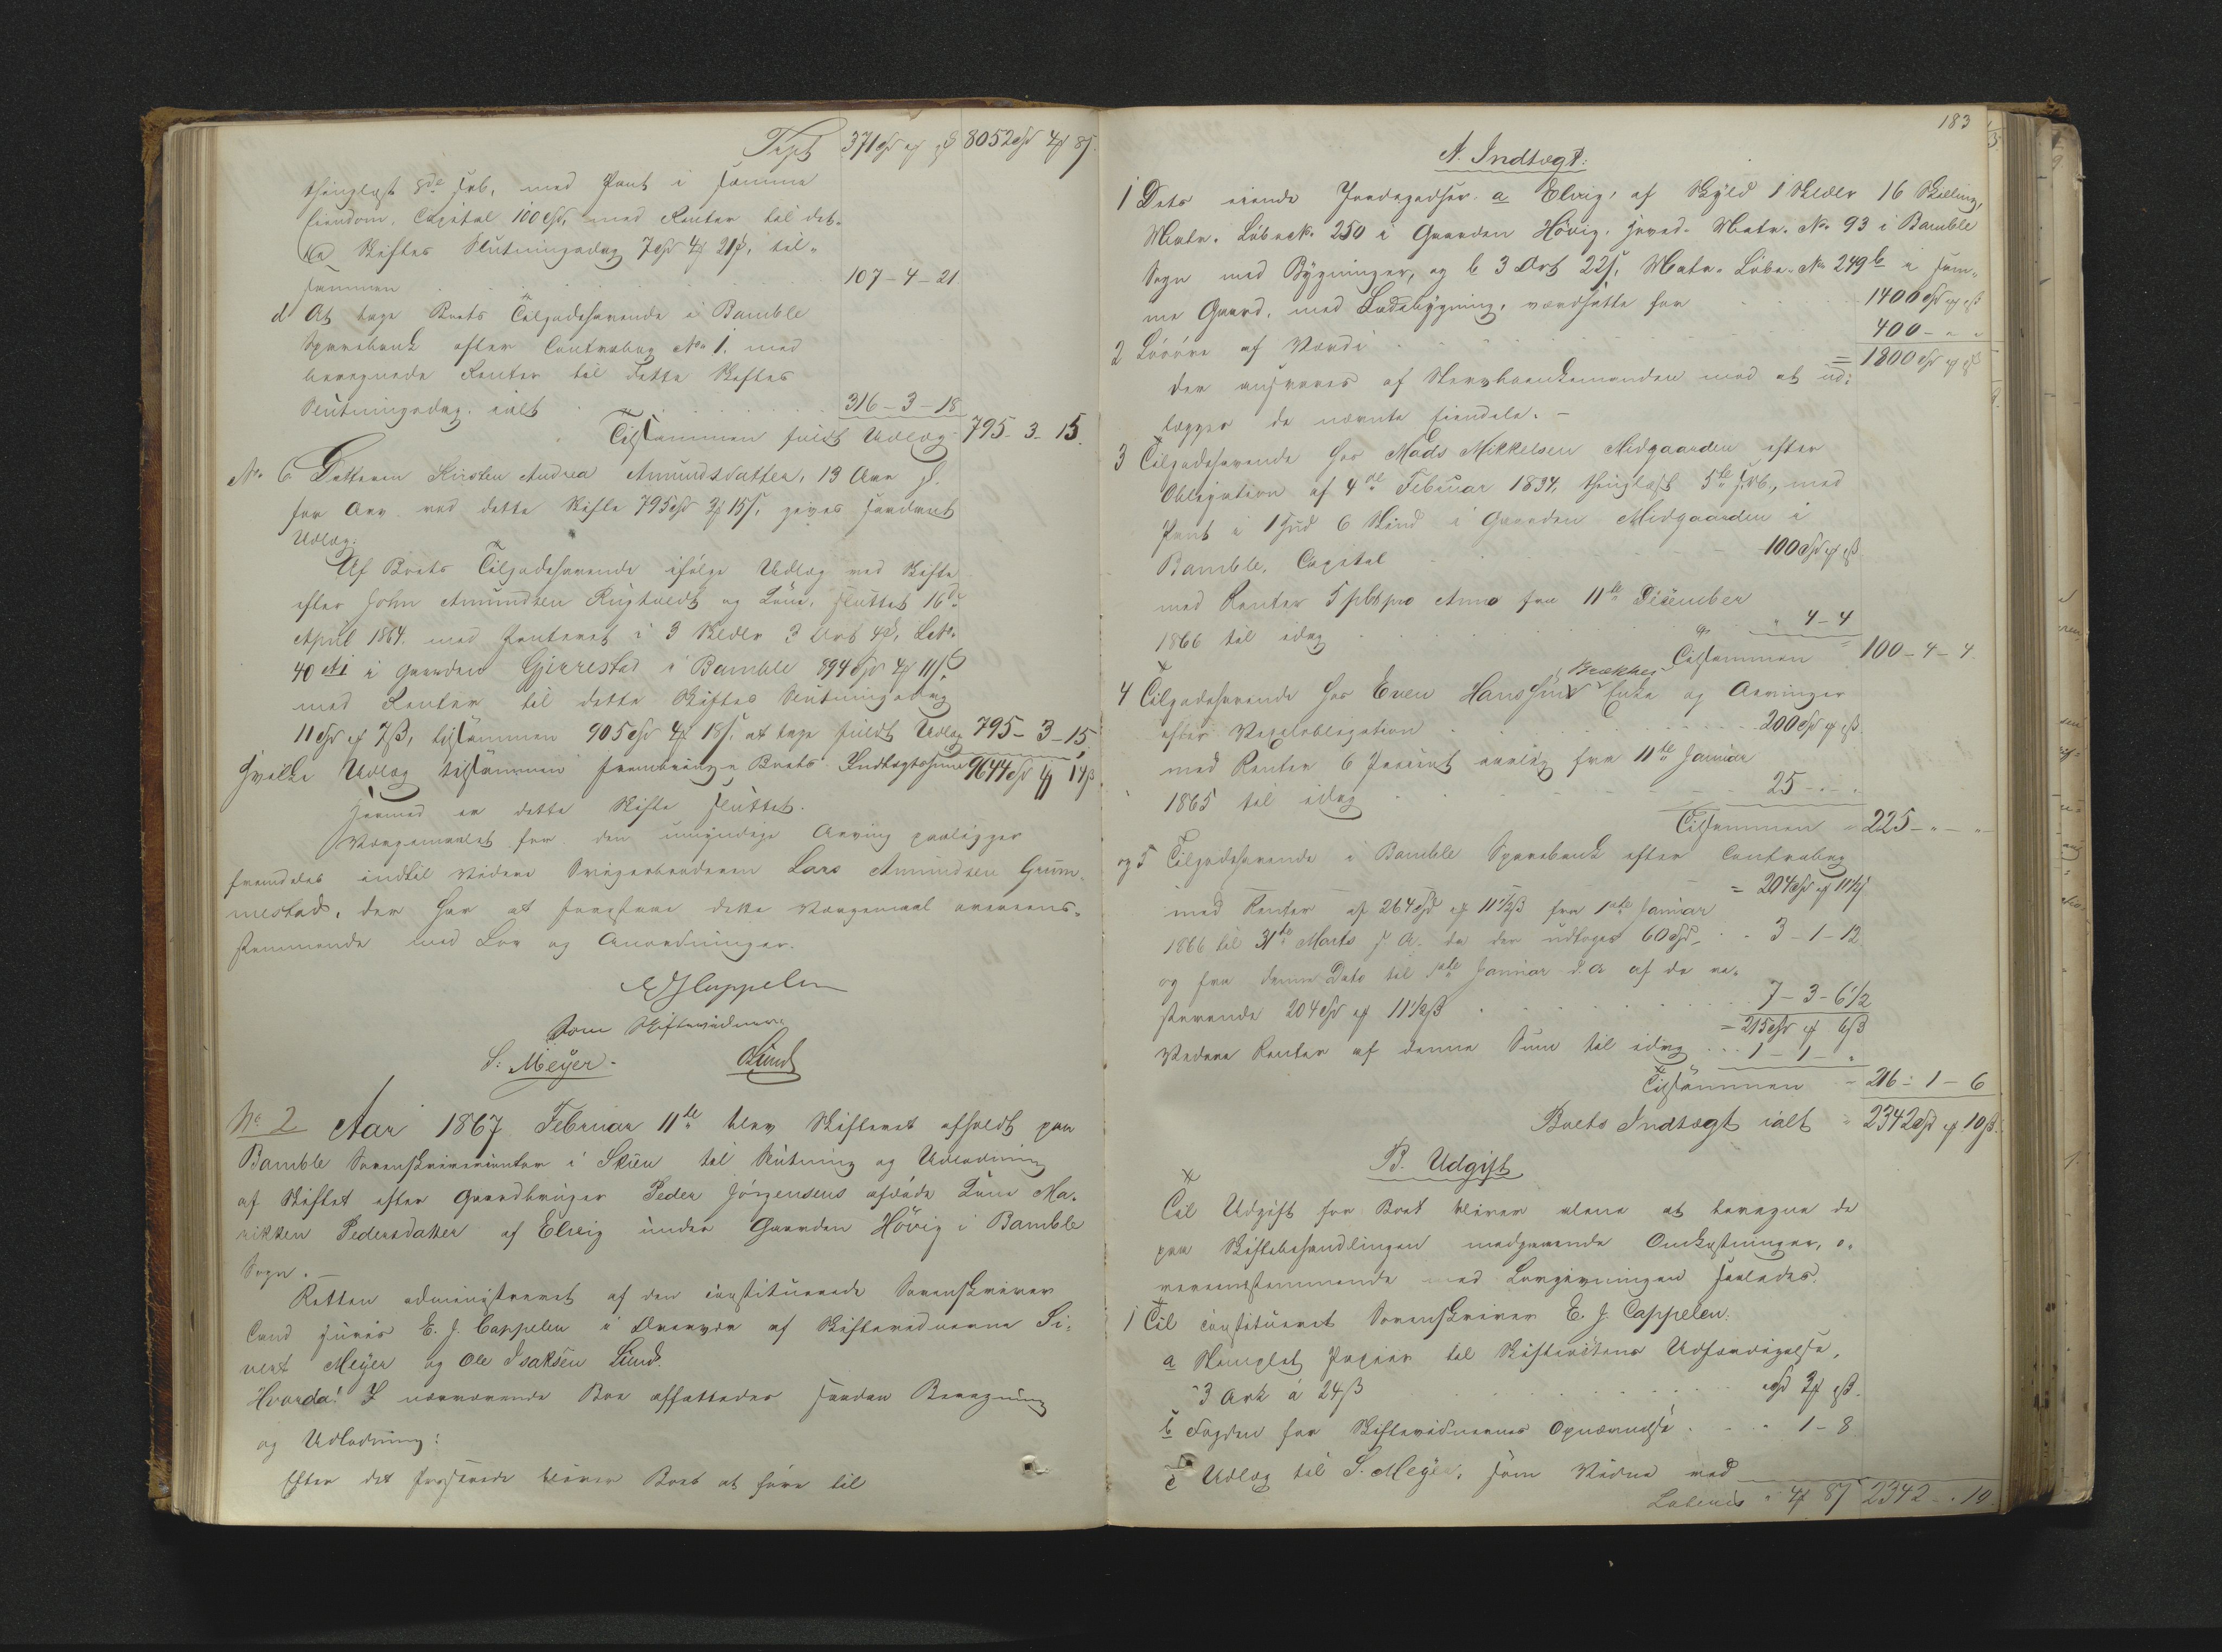 Trpt 371 Spd " ₰ " ß 8052 Spd 4 ₰ 8 ß
thinglæst 8de Feb. med Pant i samme
Eiendom. Capital 100 Spd, med Renter til det-
te Skiftes Slutningsdag 7 Spd 4 ₰ 21 ß, til-
sammen 107-4-21
d At tage Boets Tilgodehavende i Bamble
Sparebank efter Contrabog No 1. med
beregnede Renter til dette Skiftes
Slutningsdag ialt 316-3-18
Tilsammen fuldt Udlæg 795-3-15.
No 6 Datteren Kirsten Andrea Amundsdatter, 13 Aar gl.
for Arv ved dette Skifte 795 Spd 3 ₰ 15 ß, gives saadant
Udlæg:
Af Boets Tilgodehavende ifølge Udlæg ved Skifte
efter John Amundsen Rugtvedt og Kone, sluttet 16de
April 1864 med Panteret i 3 Skldr 3 Ort 4 ß, Løbn.
40 i Gaarden Gjerrestad i Bamble 894 Spd 4 ₰ 11 ß
med Renter til dette Skiftes Slutningsdag
11 Spd " ₰ 7 ß, tilsammen 905 Spd 4 ₰ 18 ß, at tage fuldt Udlæg 795-3-15
hvilke Udlæg tilsammen frembringe Boets Indtægtssum 9644 Spd 1 ₰ 14 ß
Hermed er dette Skifte sluttet.
Værgemaalet for den umyndige Arving paaligger
fremdeles indtil Videre Svigerbroderen Lars Amundsen Grum-
mestad, der har at forestaae dette Værgemaal overeens-
stemmende med Lov og Anordninger.
E J Cappelen
Som Skiftevidner
S: Meyer. OLund
No 2 Aar 1867 Februar 11te blev Skifteret afholdt paa
Bamble Sorenskrivercontor i Skien til Slutning og Udlodning
af Skiftet efter Gaardbruger Peder Jörgensens afdøde Kone Ma-
rikken Pedersdatter af Elvig under Gaarden Hövig i Bamble
Sogn.-
Retten administreret af den constituerede Sorenskriver
Cand juris E. J. Cappelen i Overvær af Skiftevidnerne Si-
vert Meyer og Ole Isaksen Lund.
Hvorda! I nærværende Boe affattedes saadan Beregning
og Udlodning:
Efter det passerede bliver Boet at føre til
183
A. Indtægt:
1 Dets eiende Jordegodser. a Elvig, af Skyld 1 Skldlr 16 Skilling,
Matr. Löbeno. 250 i Gaarden Hövig, hoved-Matr. No 93 i Bamble
Sogn med Bygninger, og b 3 Ort 22 ß, Matr. Löbe-No 249 b i sam-
me Gaard, med Ladebygning, værdsatte for 1400 Spd " ₰ " ß
2 Lösöre af Værdi 400 - " "
= 1800 Spd " ₰ " ß
der ansvares af Stervboenkemanden mod at ud-
lægges de nævnte Eiendele.-
3 Tilgodehavende hos Mads Mikkelsen Midgaarden efter
Obligation af 4de Februar 1834, thinglæst 5te Feb., med
Pant i 1 Hud 6 Skind i Gaarden Midgaarden i
Bamble, Capital 100 Spd " ₰ " ß
med Renter 5 pCt pro Anno fra 11te December
1866 til idag " 4-4
Tilsammen 100-4-4
4 Tilgodehavende hos Even Hanssøns Brækkes Enke og Arvinger
efter Vexelobligation 200 Spd " ₰ " ß
med Renter 6 Procent aarlig fra 11te Januar
1865 til idag 25 - " "
Tilsammen = 225 - " - "
og 5 Tilgodehavende i Bamble Sparebank efter Contrabog
= 204 Spd " ₰ 11½ ß
med Renter af 264 Spd " ₰ 11½ ß fra 1ste Januar
1866 til 31te Marts s. A. da der udtoges 60 Spd 3-1-12
og fra denne Dato til 1ste Januar d. A af de re-
sterende 204 Spd " ₰ 11½ ß 7-3-6½
= 215 Spd " ₰ 6 ß
Videre Renter af denne Sum til idag 1-1-"
Tilsammen - 216-1-6
Boets Indtægt ialt = 2342 Spd " ₰ 10 ß.
B. Udgift
Til Udgift for Boet bliver alene at beregne de
paa Skiftebehandlingen medgaaende Omkostninger, o-
vereensstemmende med Lovgivningen saaledes:
1 Til constitueret Sorenskriver E. J. Cappelen:
a Stemplet Papiir til Skifteactens Udfærdigelse,
3 Ark á 24 ß " Spd 3 ₰ " ß
b Fogden for Skiftevidnernes Opnævnelse " 1-8
c Udlæg til S. Meyer, som Vidne ved
Lateris " 4 ₰ 8 ß 2342 - " 10.